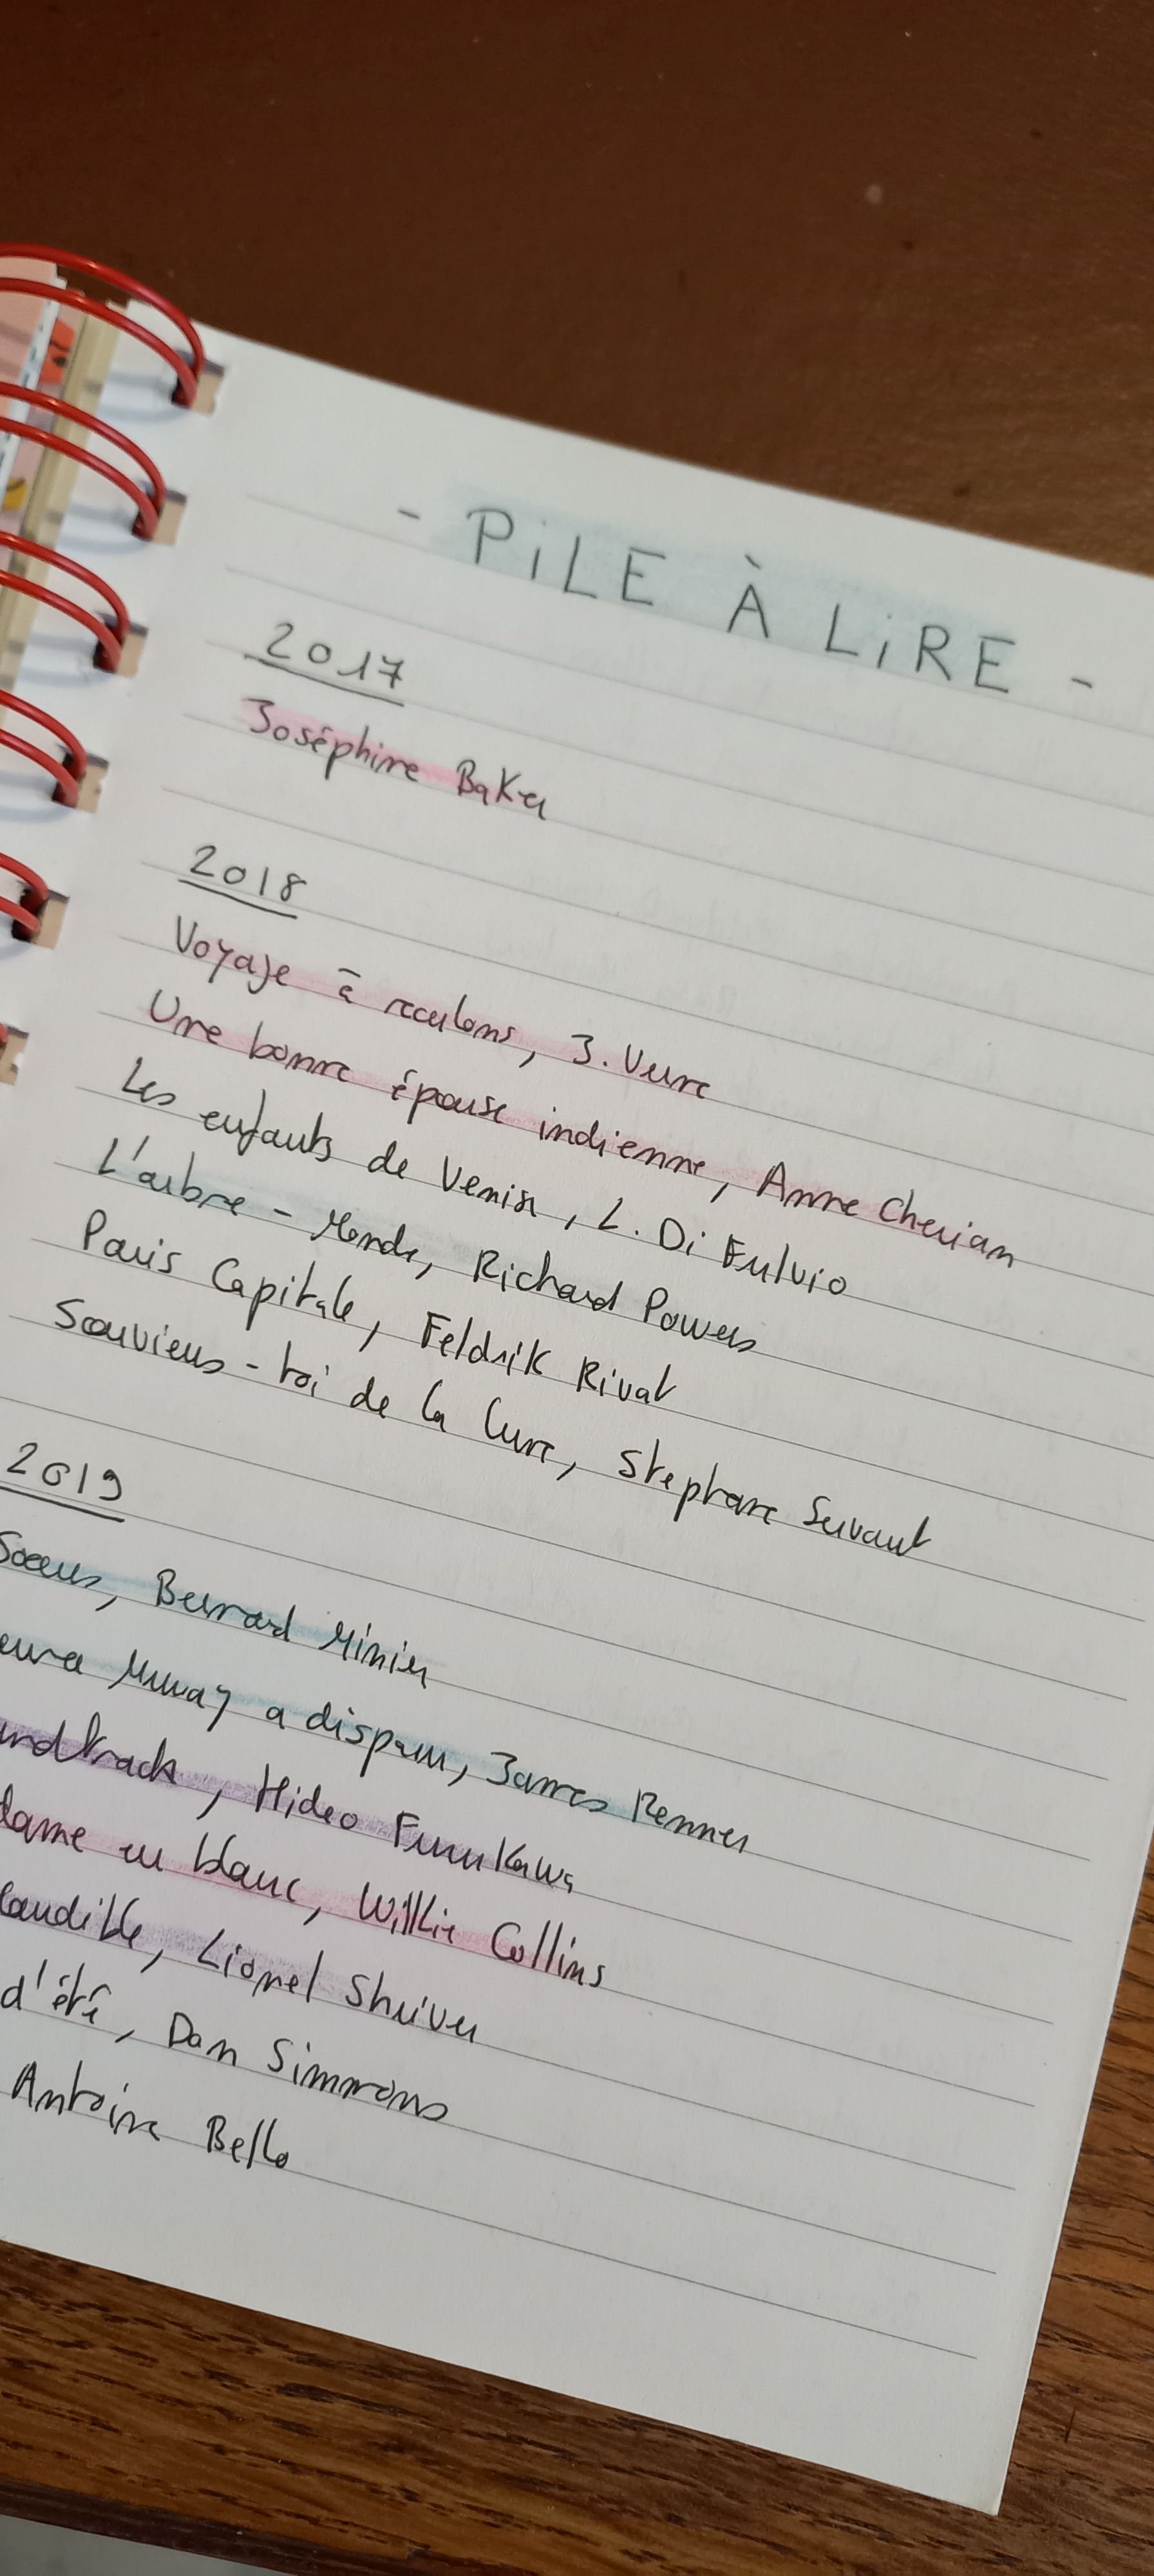 - PiLE À LiRE -
2017
Joséphine Baker
2018
Voyage à reculons, J. Verne
Une bonne épouse indienne, Anne Cherian
Les enfants de Venise, L. Di Fulvio
L'arbre-Monde, Richard Powers
Paris Capitale, Feldrik Rivat
Souviens-toi de la lune, Stephane Servant
2019
Soeurs, Bernard Minier
Murray a disparu, James Renner
undtrack, Hideo Furukawa
dame en blanc, Wilkie Collins
Lionel Shriver
d'été, Dan Simmons
Antoine Bello